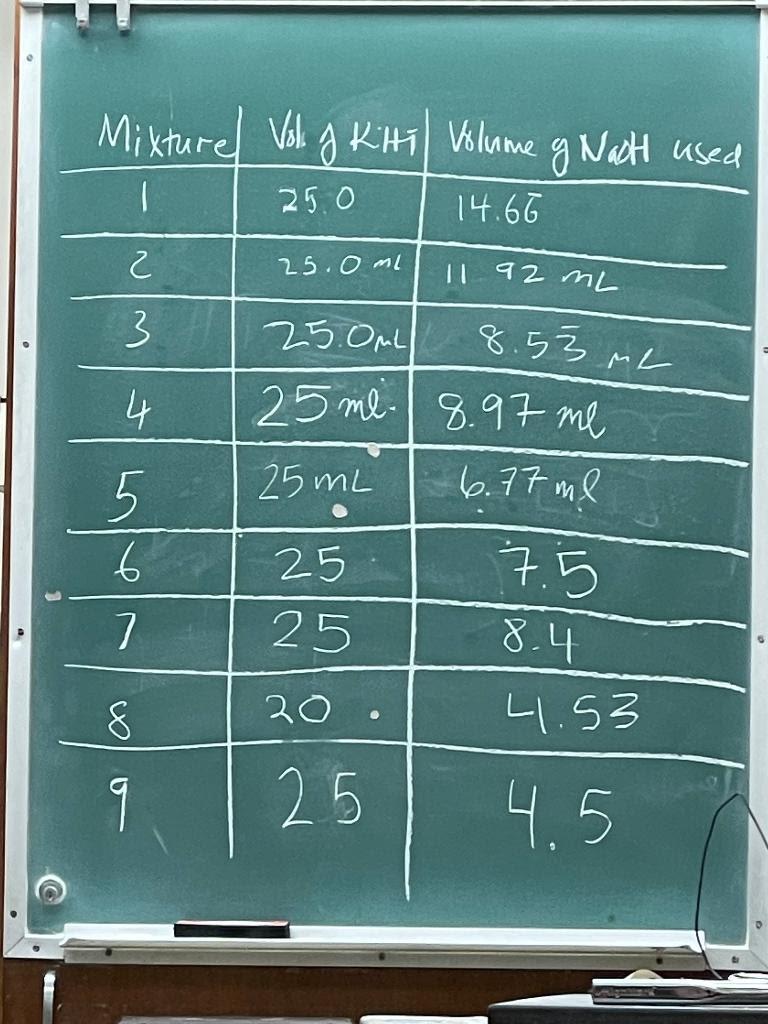 Mixture Vol. of KHT Volume of NaOH used
1 25.0 14.66
2 25.0 ml 11.92 mL
3 25.0mL 8.53 mL
4 25 ml. 8.97 ml
5 25 mL 6.77 ml
6 25 7.5
7 25 8.4
8 20 4.53
9 25 4.5